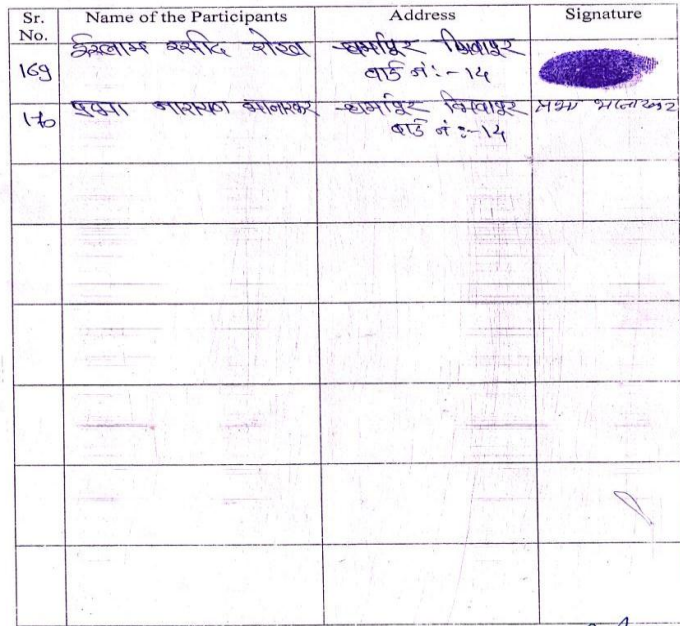 Sr. No. Name of the Participants Address Signature
169 ईस्लाम रसीद शेख धर्मापूर भिवापूर
वार्ड नं :- 14
170 नारायण धर्मापूर भिवापूर
वार्ड नं :- 14